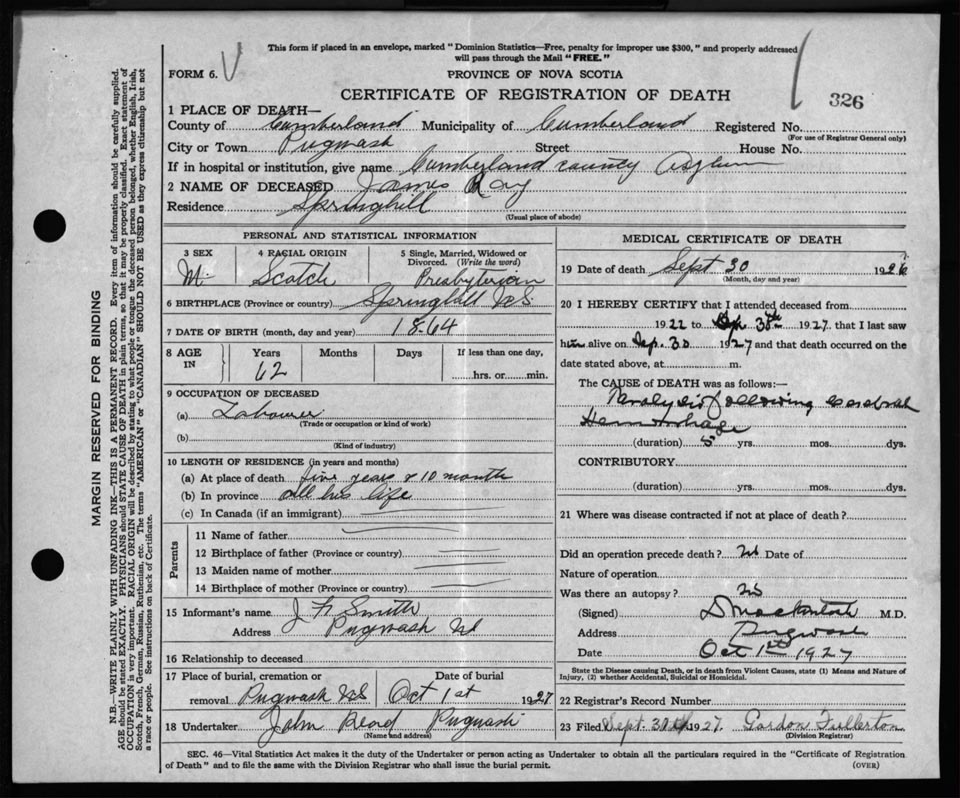 This form if placed in an envelope, marked "Dominion Statistics—Free, penalty for improper use $300," and properly addressed
will pass through the Mail "FREE."
FORM 6. V
PROVINCE OF NOVA SCOTIA
CERTIFICATE OF REGISTRATION OF DEATH
326
1 PLACE OF DEATH—
County of Cumberland Municipality of Cumberland Registered No.
(For use of Registrar General only)
City or Town Pugwash Street House No.
If in hospital or institution, give name Cumberland County Asylum
2 NAME OF DECEASED James Ray
Residence Springhill
(Usual place of abode)
PERSONAL AND STATISTICAL INFORMATION
3 SEX 4 RACIAL ORIGIN 5 Single, Married, Widowed or
Divorced. (Write the word)
M. Scotch Presbyterian
6 BIRTHPLACE (Province or country) Springhill N S.
7 DATE OF BIRTH (month, day and year) 1864
8 AGE IN Years Months Days If less than one day,
62 hrs. or min.
9 OCCUPATION OF DECEASED
(a) Labourer
(Trade or occupation or kind of work)
(b)
(Kind of industry)
10 LENGTH OF RESIDENCE (in years and months)
(a) At place of death five years & 10 month
(b) In province all his life
(c) In Canada (if an immigrant)
Parents
11 Name of father
12 Birthplace of father (Province or country)
13 Maiden name of mother
14 Birthplace of mother (Province or country)
15 Informant's name J F Smith
Address Pugwash NS
16 Relationship to deceased
17 Place of burial, cremation or Date of burial
removal Pugwash NS Oct 1st 1927
18 Undertaker John Beard Pugwash
(Name and address)
MEDICAL CERTIFICATE OF DEATH
19 Date of death Sept 30 1926
(Month, day and year)
20 I HEREBY CERTIFY that I attended deceased from
1922 to Sep. 30th 1927. that I last saw
him alive on Sep. 30 1927 and that death occurred on the
date stated above, at m.
The CAUSE of DEATH was as follows:—
Paralysis following cerebral
Hemorrhage
(duration) 5 yrs. mos. dys.
CONTRIBUTORY
(duration) yrs. mos. dys.
21 Where was disease contracted if not at place of death?
Did an operation precede death? No Date of
Nature of operation
Was there an autopsy? No
(Signed) D Mackintosh M.D.
Address Pugwash
Date Oct 1st 1927
State the Disease causing Death, or in death from Violent Causes, state (1) Means and Nature of
Injury, (2) whether Accidental, Suicidal or Homicidal.
22 Registrar's Record Number
23 Filed Sept. 30th 1927. Gordon Fullerton
(Division Registrar)
SEC. 46—Vital Statistics Act makes it the duty of the Undertaker or person acting as Undertaker to obtain all the particulars required in the "Certificate of Registration
of Death" and to file the same with the Division Registrar who shall issue the burial permit.
(OVER)
MARGIN RESERVED FOR BINDING
N.B.—WRITE PLAINLY WITH UNFADING INK—THIS IS A PERMANENT RECORD. Every item of information should be carefully supplied.
AGE should be stated EXACTLY. PHYSICIANS should STATE CAUSE OF DEATH in plain terms, so that it may be properly classified. Exact statement of
OCCUPATION is very important. RACIAL ORIGIN will be described by stating to what people or tongue the deceased person belonged, whether English, Irish,
Scotch, French, German, Russian, Ruthenian, etc. The terms "AMERICAN" or "CANADIAN" SHOULD NOT BE USED as they express citizenship but not
a race or people. See instructions on back of Certificate.